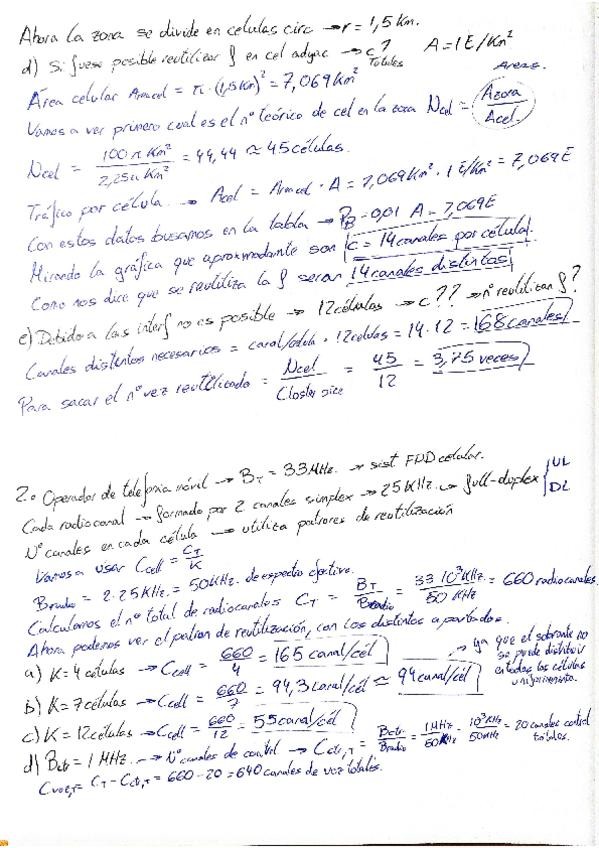 Ahora la zona se divide en celulas circ → r = 1,5 Km.
d) Si fuese posible reutilizar f en cel adyac → c? Totales A = 1E/Km²
Área celular Aracel = π·(1,5Km)² = 7,069Km² Areas.
Vamos a ver primero cual es el nº teórico de cel en la zona Ncel = (Azona / Acel)
Ncel = 100π Km² / 2,25π Km² = 44,44 ≈ 45 células.
Tráfico por célula. → Acel = Aracel · A = 7,069Km² · 1E/Km² = 7,069E
Con estos datos buscamos en la tabla → PB = 0,01 A = 7,069E
Mirando la gráfica que aproxmodante son c = 14 canales por célula.
Como nos dice que se reutiliza la f seran 14 canales distintos
e) Debido a las interf no es posible → 12 células → c?? → nº reutilizan f?
Canales distintos necesarios = canal/celula · 12 celulas = 14·12 = 168 canales
Para sacar el nº vez reutilizado = Ncel / Closter size = 45 / 12 = 3,75 veces
2. Operador de telefonia móvil → BT = 33 MHz. → sist FDD celular.
Cada radiocanal → formado por 2 canales simplex → 25 KHz. → full-duplex { UL DL
Nº canales en cada célula → utiliza patrones de reutilización
Vamos a usar Ccell = CT / K
Bradio = 2·25 KHz. = 50 KHz. de espectro efectivo.
Calculamos el nº total de radiocanales CT = BT / Bradio = 33·10³ KHz. / 50 KHz = 660 radiocanales
Ahora podemos ver el patron de reutilización, con los distintos apartados.
a) K = 4 células → Ccell = 660 / 4 = 165 canal/cél
b) K = 7 células → Ccell = 660 / 7 = 94,3 canal/cél ≈ 94 canal/cél → ya que el sobrante no se puede distribuir en todas las células uniformemente.
c) K = 12 células → Ccell = 660 / 12 = 55 canal/cél
d) Bctr = 1 MHz. → Nº canales de control → Cctr,T = Bctr / Bradio = 1MHz / 50KHz = 10³ KHz / 50MHz = 20 canales control totales.
Cvoz,T = CT - Cctr,T = 660 - 20 = 640 canales de voz totales.